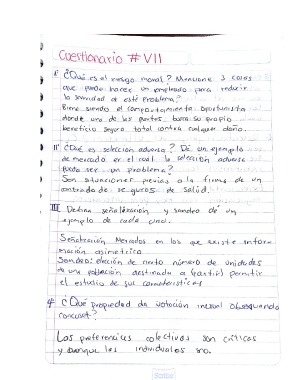 Cuestionario #VII
I° ¿Qué es el riesgo moral? Mencione 3 cosas
que puede hacer un empleado para reducir
la severidad de este problema?
Biene siendo el comportamiento oportunista
donde una de las partes busca su propio
beneficio seguro total contra cualquier daño.
II° ¿Qué es selección adversa? De un ejemplo
de mercado en el cual la selección adversa
pueda ser un problema?
Son situaciones previas a la firma de un
contrado de seguros de salud.
III Defina señalización y sondeo dé un
ejemplo de cada uno.
Señalización Mercados en los que existe infor-
mación asimetrica
Sondeo: elección de cierto número de unidades
de una población destinada a (partir) permitir
el estudio de sus caracteristicas
¿Qué propiedad da votación
Las preferencias colectivas son criticas
y aunque las individuales no.